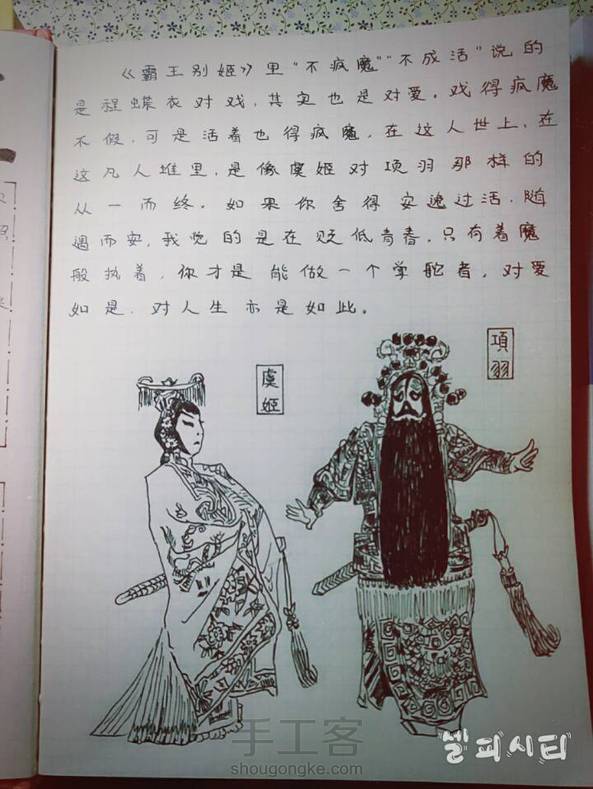 《霸王别姬》里“不疯魔”“不成活”说的
是程蝶衣对戏，其实也是对爱。戏得疯魔
不假，可是活着也得疯魔，在这人世上，在
这凡人堆里，是像虞姬对项羽那样的
从一而终。如果你舍得安逸过活，随
遇而安，我觉的是在贬低青春，只有着魔
般执着，你才是能做一个掌舵者，对爱
如是，对人生亦是如此。
項羽
虞姬
手工客
shougongke.com